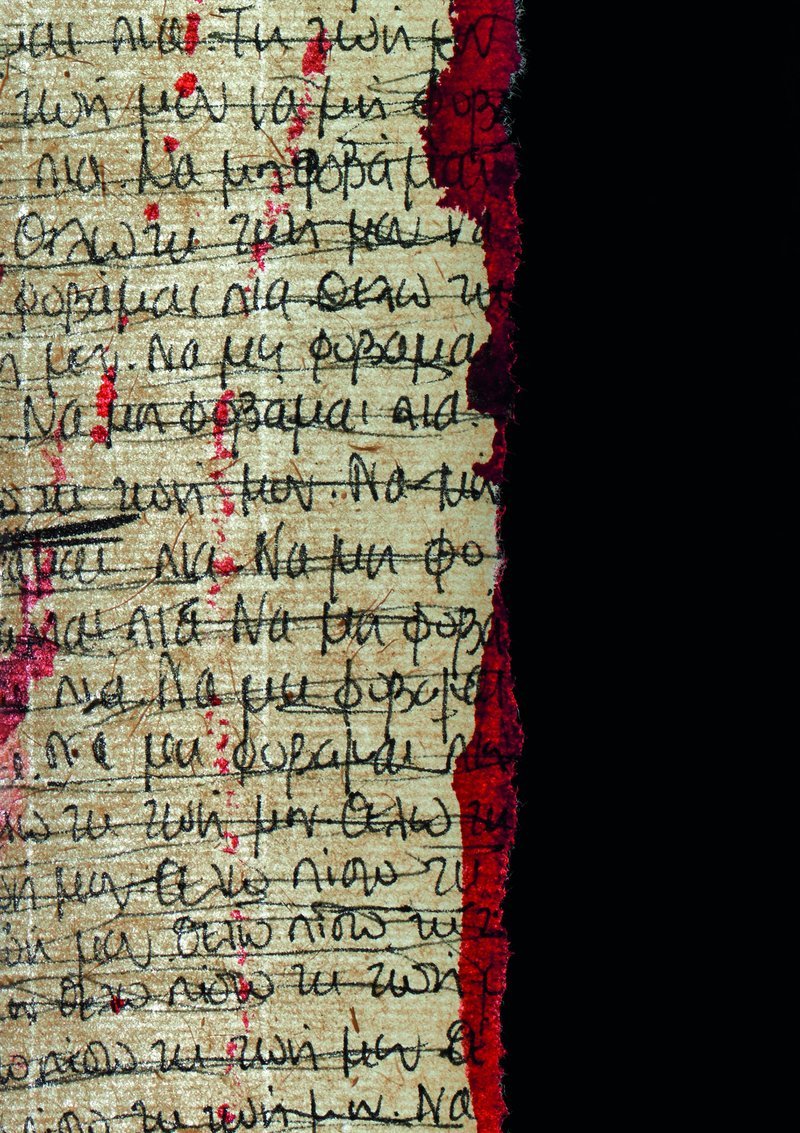 μαι πια. Τη ζωή μου
ζωή μου να μη φοβά
πια. Να μη φοβάμαι
Θέλω τη ζωή μου να
φοβάμαι πια Θέλω τη
μου. Να μη φοβαμα
Να μη φοβαμαι πια.
τη ζωή μου. Να μη
αμαι πια Να μη φο
αμαι πια Να μη φοβά
πια. Να μη φοβαμαι
μη φοβαμαι πια
τη ζωή μου. Θελω τη
μου Θελω πίσω τη
μου θελω πίσω τη ζ
θελω πίσω τη ζωή μ
πίσω τη ζωή μου Θε
πίσω τη ζωή μου. Να